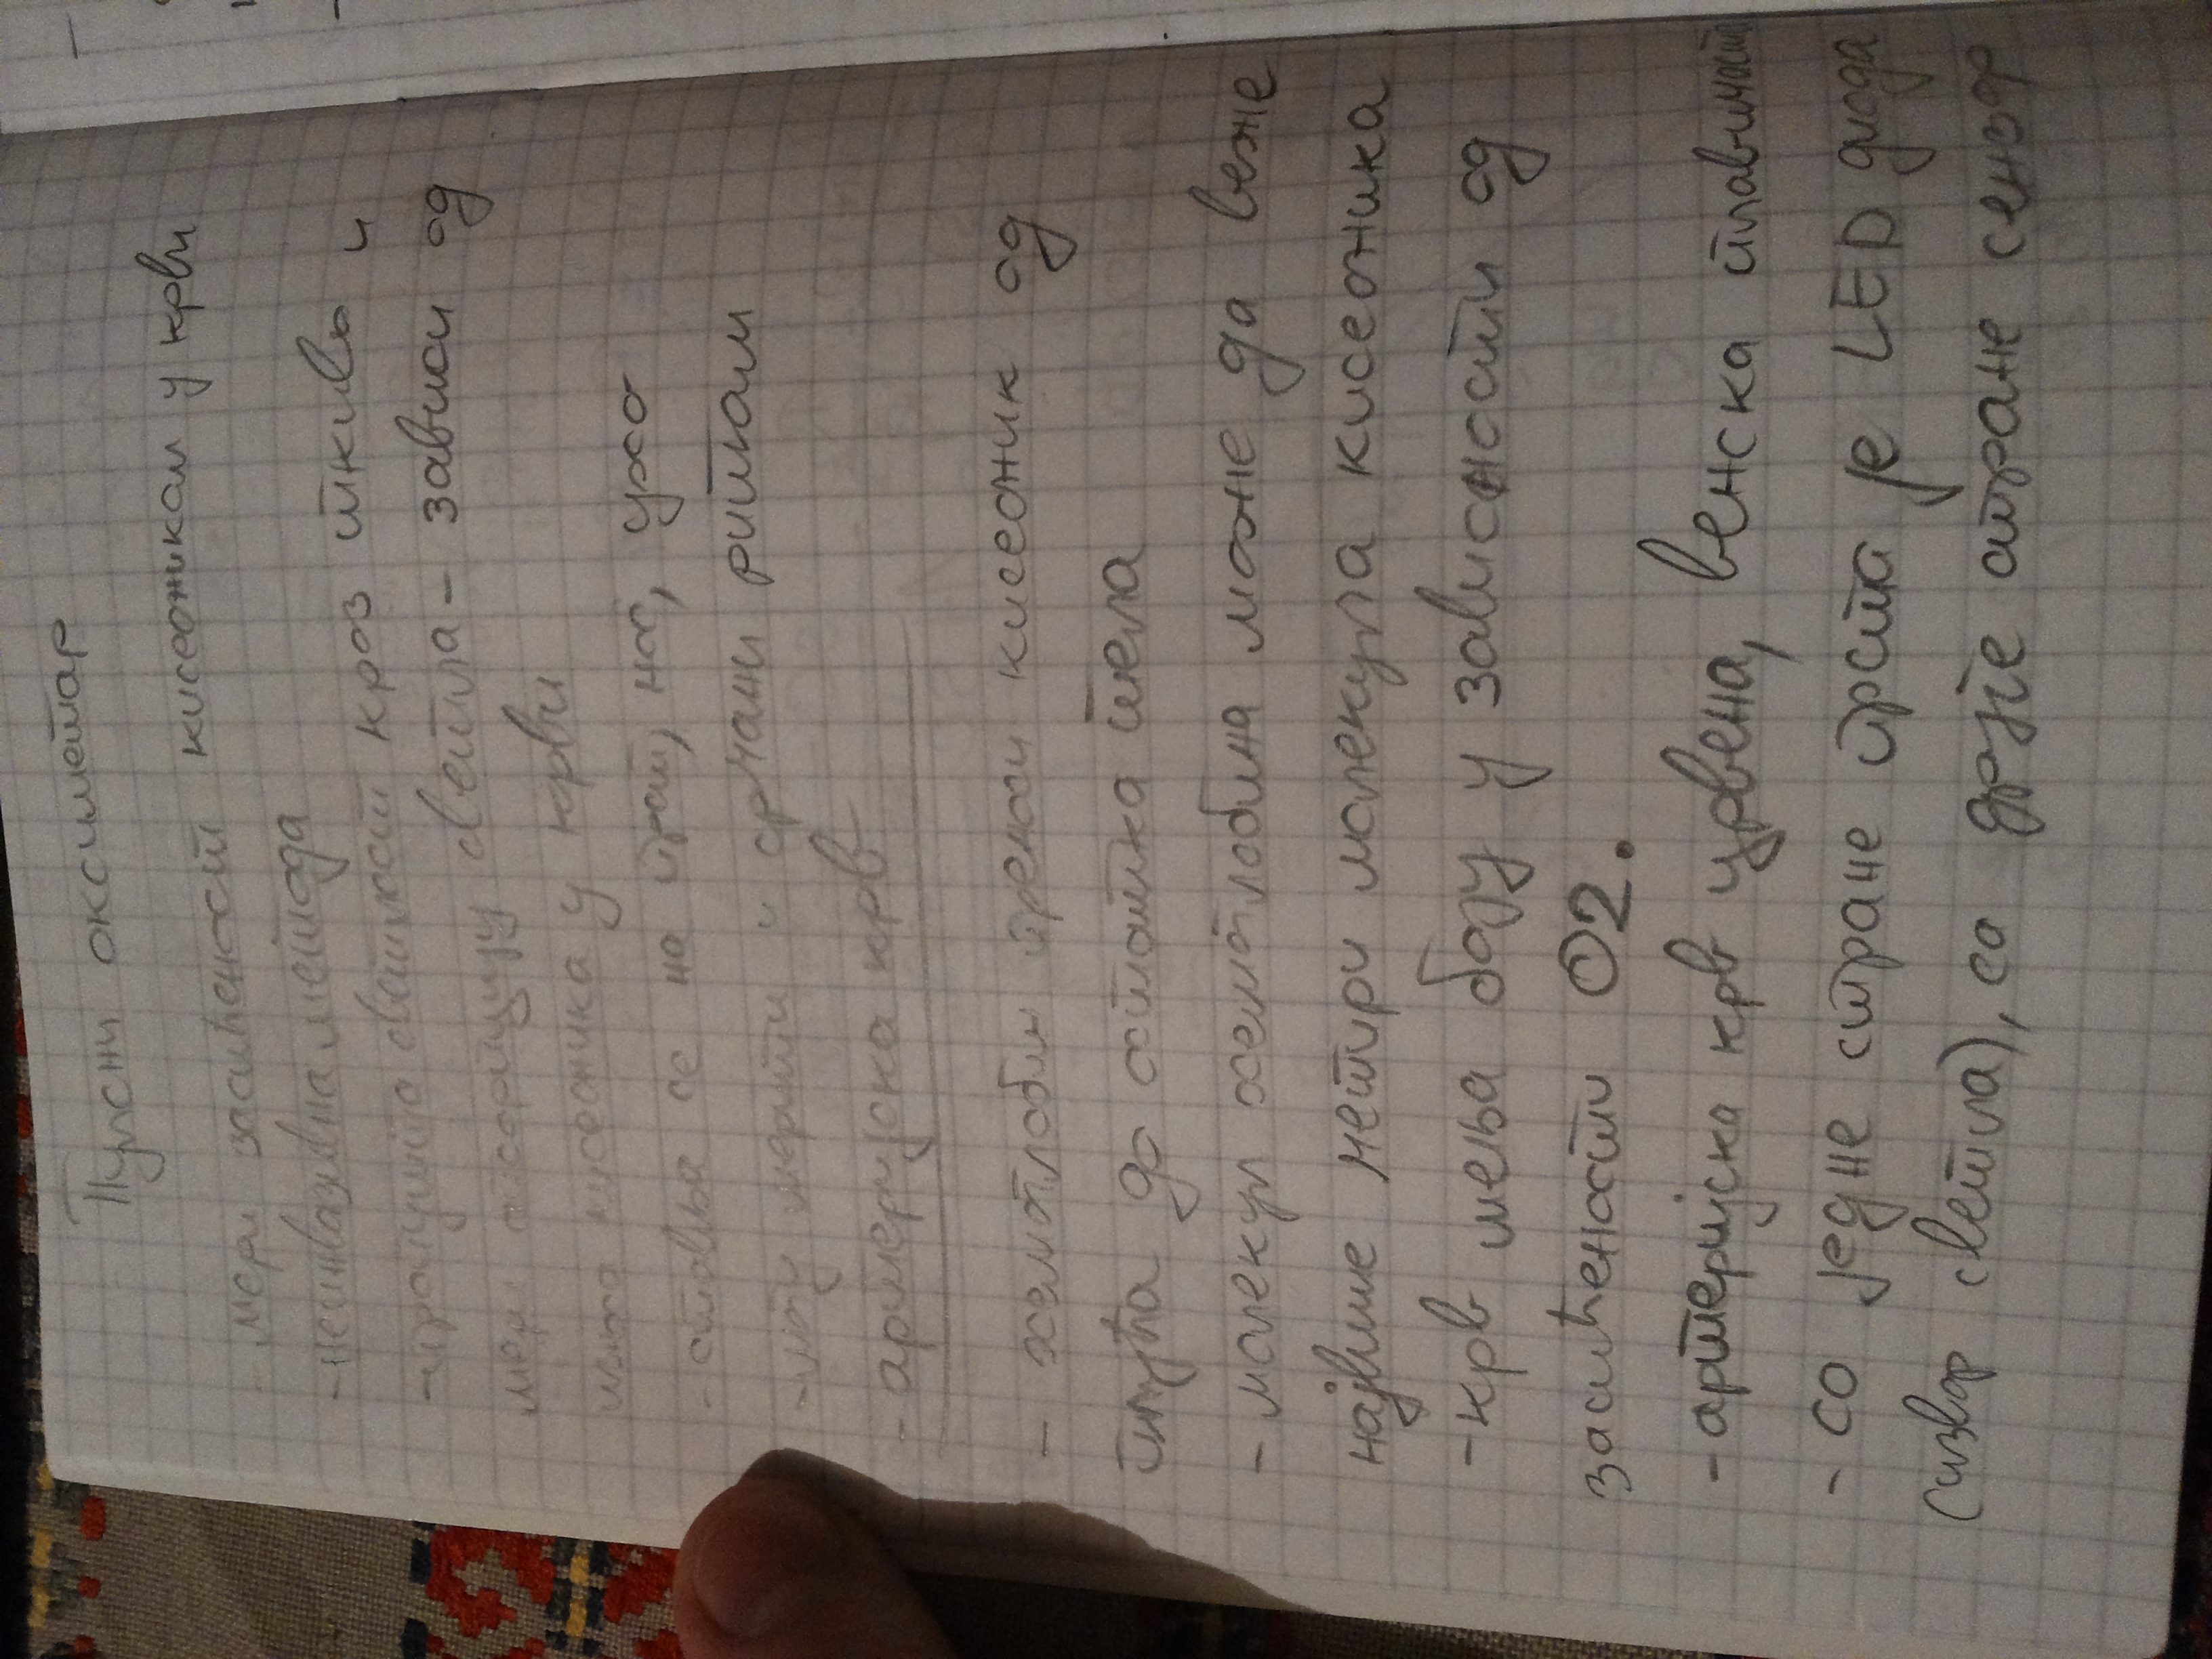 Пулсни оксиметар
- мери засићеност кисеоником у крви
- неинвазивна метода
- пропушта светлост кроз ткиво и
мери апсорпцију светла - зависи од
кисеоника у крви
- ставља се на прст, нос, ухо
- могу мерити и срчани ритам
- артеријска крв
- хемоглобин преноси кисеоник од
плућа до остатка тела
- молекул хемоглобина може да веже
највише четири молекула кисеоника
- крв мења боју у зависности од
засићености O2.
- артеријска крв црвена, венска плавичаста
- са једне стране прста је LED диода
(извор светла), са друге стране сензор